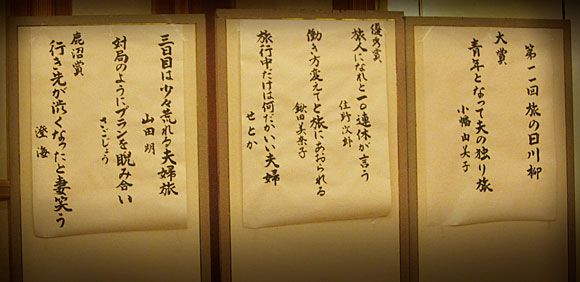 第一一回 旅の日川柳
大賞
青年となって夫の独り旅
小幡由美子
優秀賞
旅人になれと一〇連休が言う
住野次郎
働き方変えてと旅にあおられる
鍬田美奈子
旅行中だけは何だかいい夫婦
せとか
三日目は少々荒れる夫婦旅
山田明
対局のようにプランを睨み合い
さごじょう
鹿沼賞
行き先が渋くなったと妻笑う
澄海